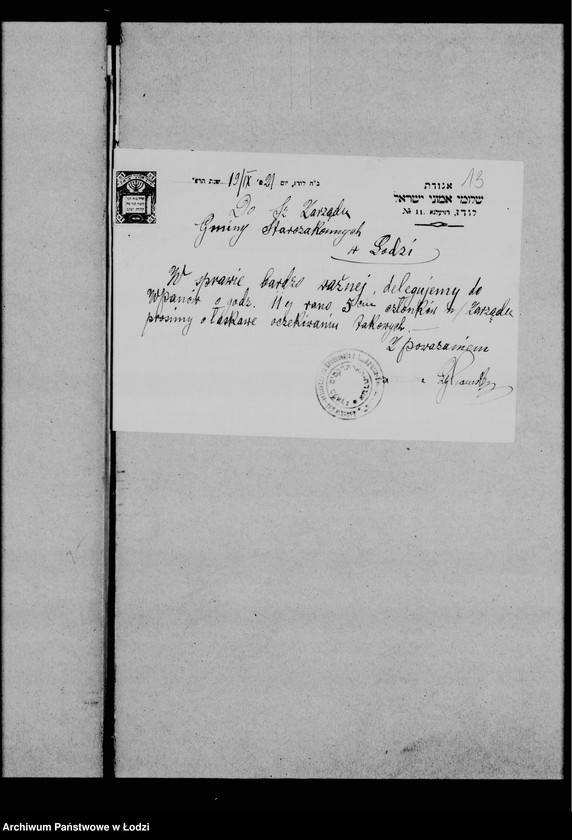 13
אגודת
שלומי אמוני ישראל
לודז, № 11.
ב"ה לודז, יום 19/IX 21 שנת תרפ"
Do Sz. Zarządu
Gminy Starozakonnych
w Łodzi
W sprawie bardzo ważnej, delegujemy do
WPanów o godz. 11 ej rano 5ciu członków n/Zarządu
prosimy o łaskawe oczekiwaniu takowych.
Z poważaniem
Archiwum Państwowe w Łodzi